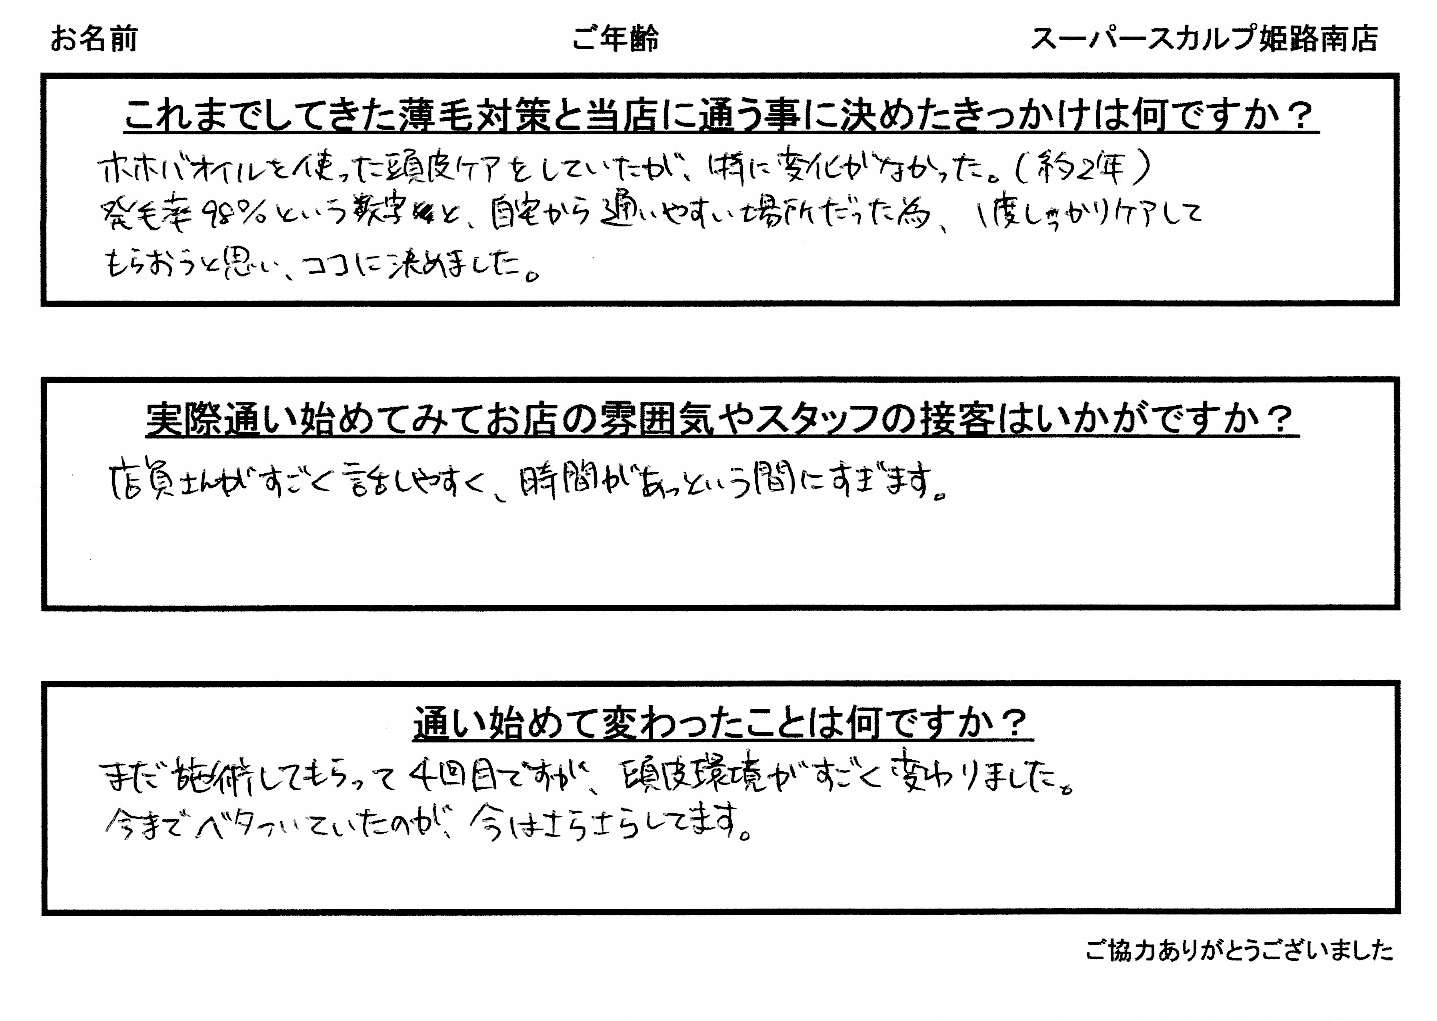 お名前 ご年齢 スーパースカルプ姫路南店
これまでしてきた薄毛対策と当店に通う事に決めたきっかけは何ですか？
ホホバオイルを使った頭皮ケアをしていたが、特に変化がなかった。（約2年）
発毛率98%という数字と、自宅から通いやすい場所だった為、1度しっかりケアして
もらおうと思い、ココに決めました。
実際通い始めてみてお店の雰囲気やスタッフの接客はいかがですか？
店員さんがすごく話しやすく、時間があっという間にすぎます。
通い始めて変わったことは何ですか？
まだ施術してもらって4回目ですが、頭皮環境がすごく変わりました。
今までベタついていたのが、今はさらさらしてます。
ご協力ありがとうございました